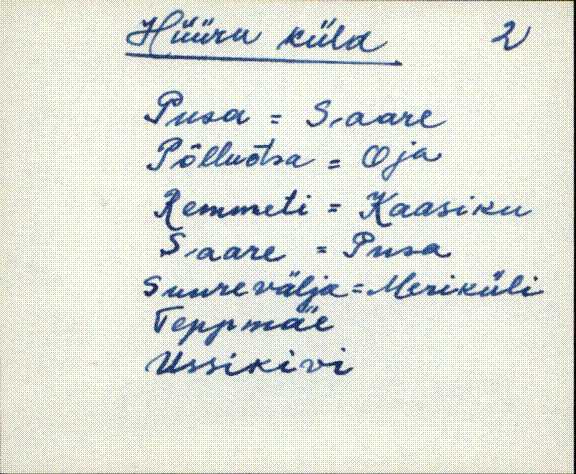 Hüüru küla 2
Pusa = Saare
Põlluotsa = Oja
Remmeti = Kaasiku
Saare = Pusa
Suurevälja = Meriküli
Teppmäe
Ussikivi